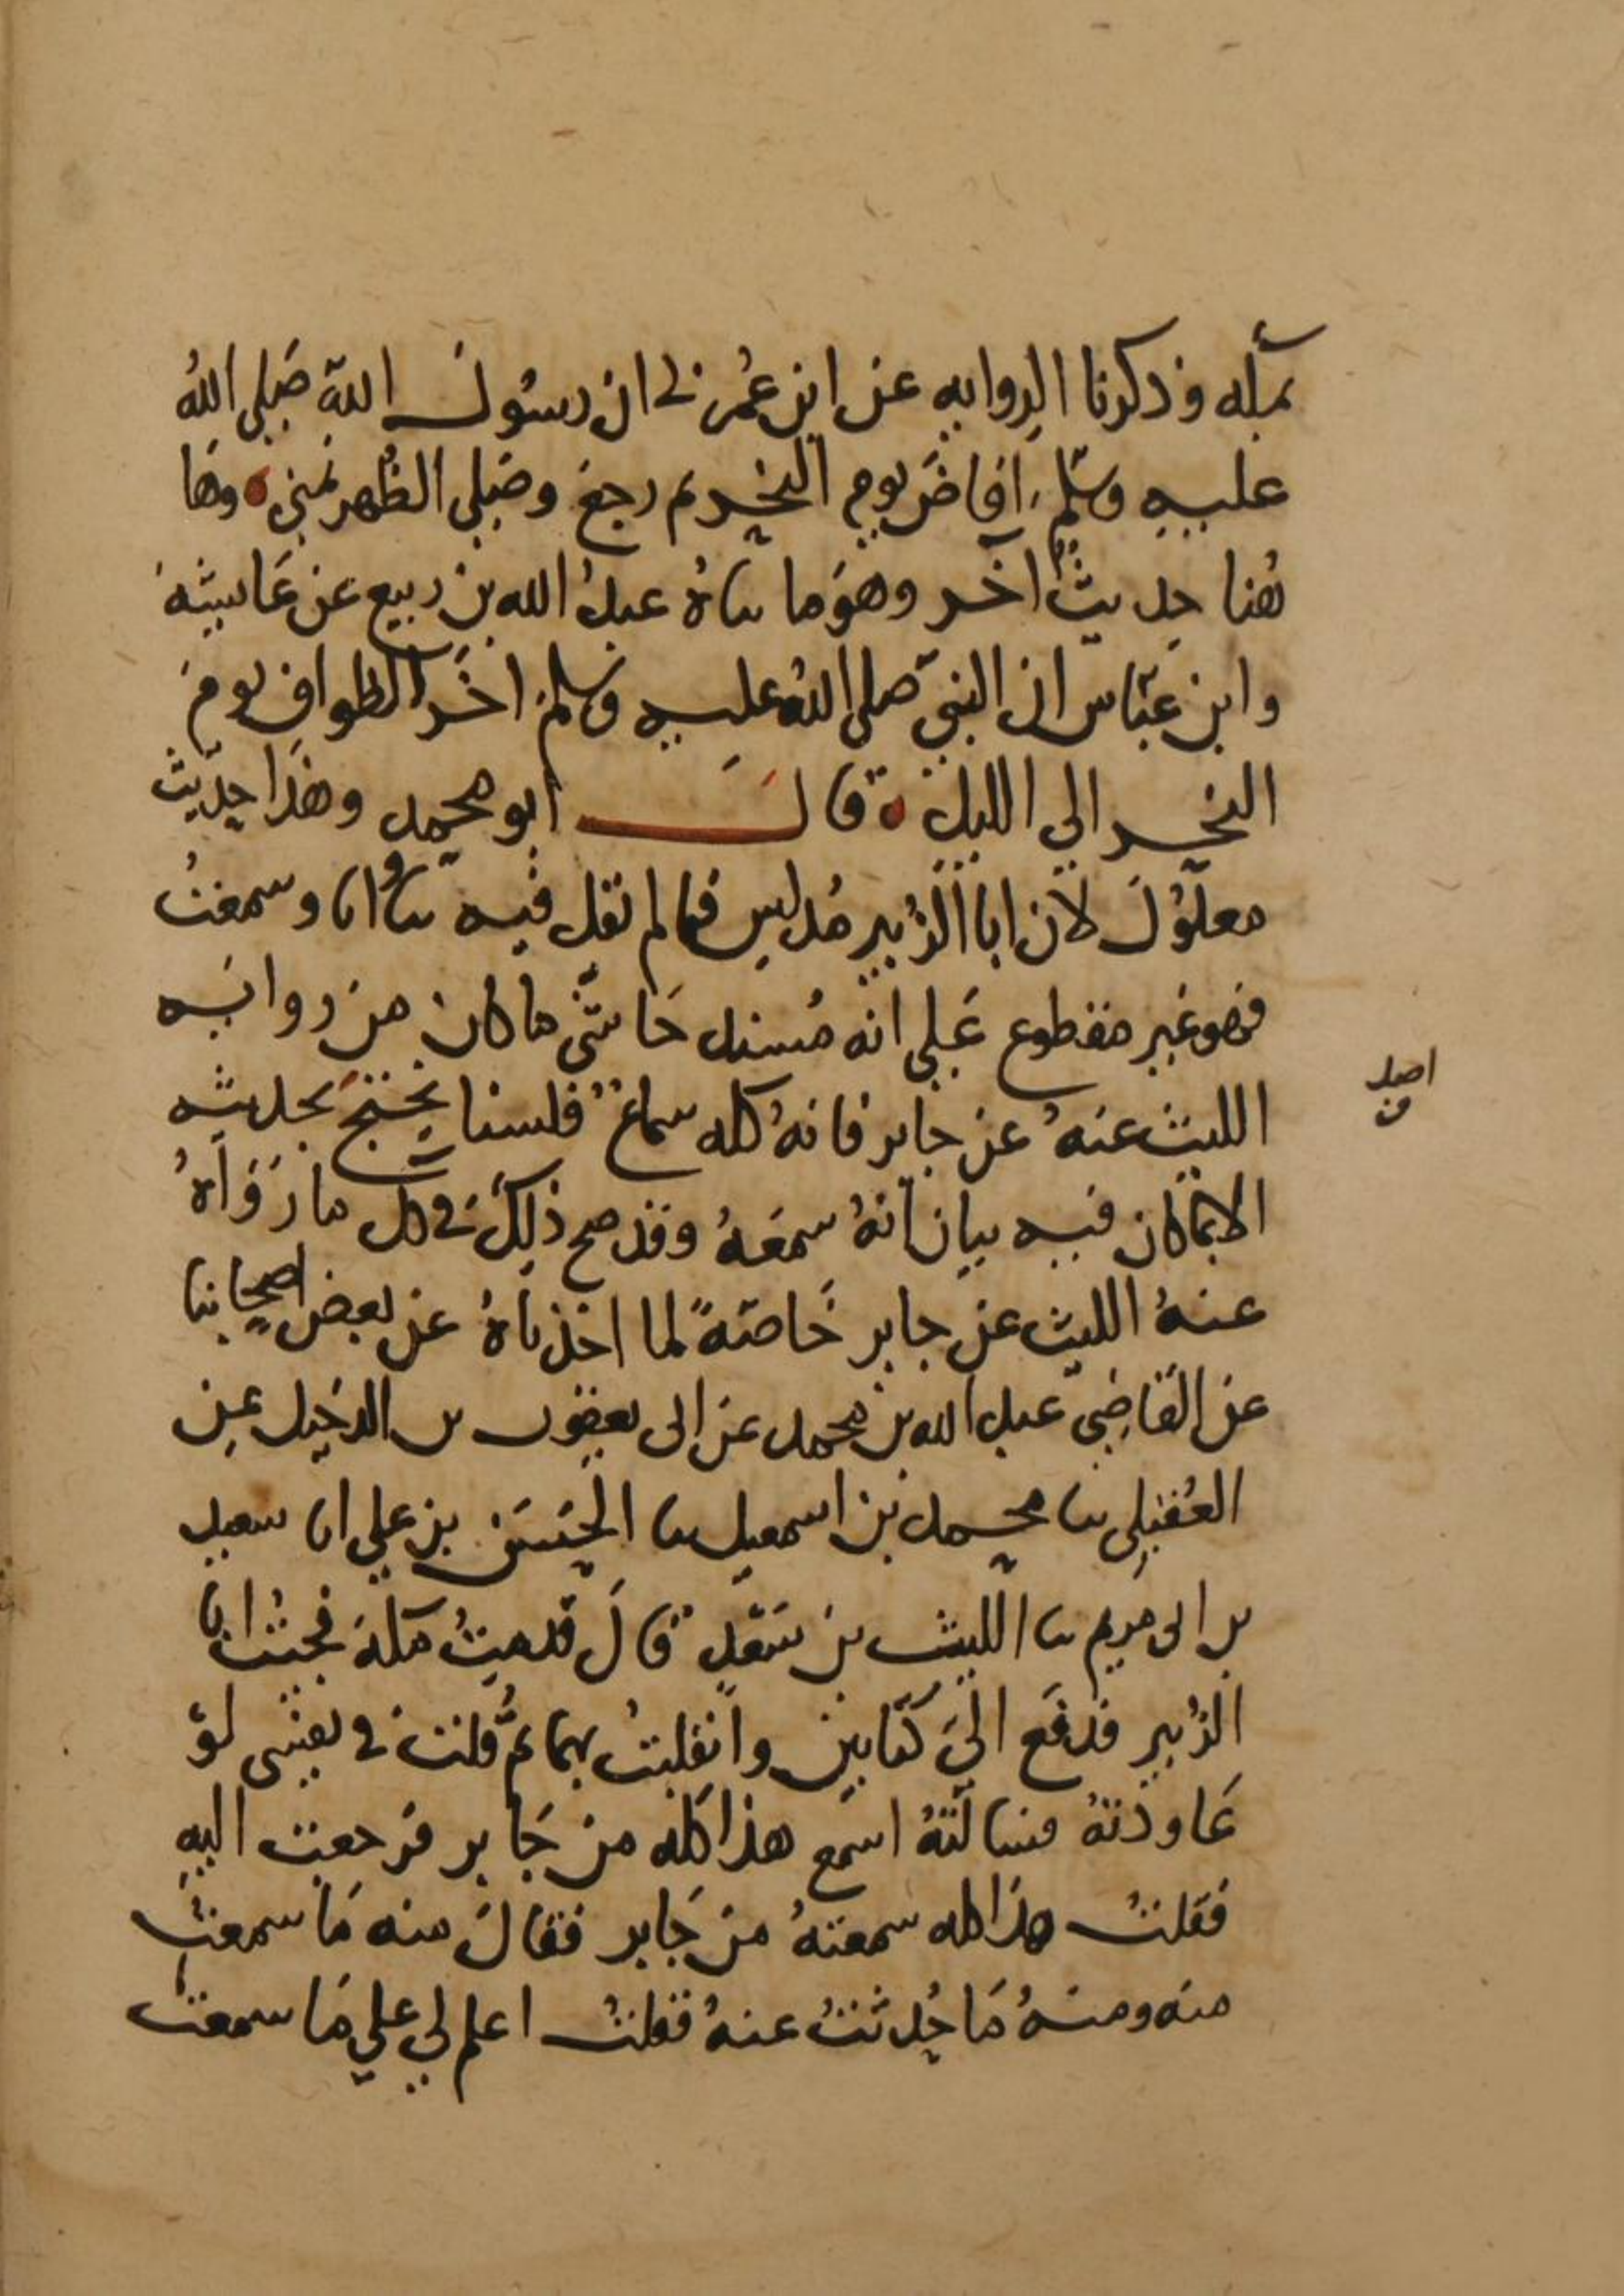 بمكة وذكرنا الرواية عن ابن عمر في ان رسول الله صلى الله
عليه وسلم افاض يوم النحر ثم رجع وصلى الظهر بمنى وها
هنا حديث آخر وهو ما ناه عبد الله بن ربيع عن عايشة
وابن عباس ان النبي صلى الله عليه وسلم اخر الطواف يوم
النحر الى الليل قال ابو محمد وهذا حديث
معلول لان ابا الزبير مدلس فما لم يقل فيه نا وانا وسمعت
فهو غير مقطوع على انه مسند حاشى ما كان من روايه
الليث عنه عن جابر فانه كله سماع فلسنا نحتج بحديثه
الا بما كان فيه بيان انه سمعه وقد صح ذلك في كل ما رواه
عنه الليث عن جابر خاصة لما اخذناه عن بعض اصحابنا
عن القاضي عبد الله بن محمد عن ابى يعقوب بن الدخيل عن
العقيلي نا محمد بن اسمعيل نا الحسن بن علي انا سعيد
بن ابى مريم نا الليث بن سعد قال قدمت مكة فجئت ابا
الزبير فدفع الي كتابين وانقلبت بهما ثم قلت في نفسي لو
عاودته فسالته اسمع هذا كله من جابر فرجعت اليه
فقلت هذا كله سمعته من جابر فقال منه ما سمعت
منه ومنه ما حدثت عنه فقلت اعلم لي على ما سمعت
اصل